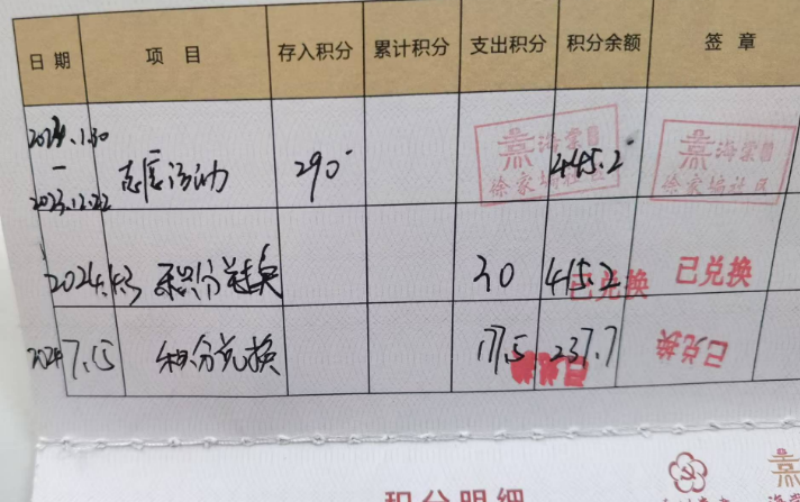 日期 项目 存入积分 累计积分 支出积分 积分余额 签章
2024.1.30
— 志愿活动 290 445.2
2023.12.22
海棠
徐家塥社区
海棠
徐家塥社区
2024.4.3 积分兑换 30 415.2 已兑换 已兑换
2024 7.15 积分兑换 177.5 237.7 已兑换
积分明细